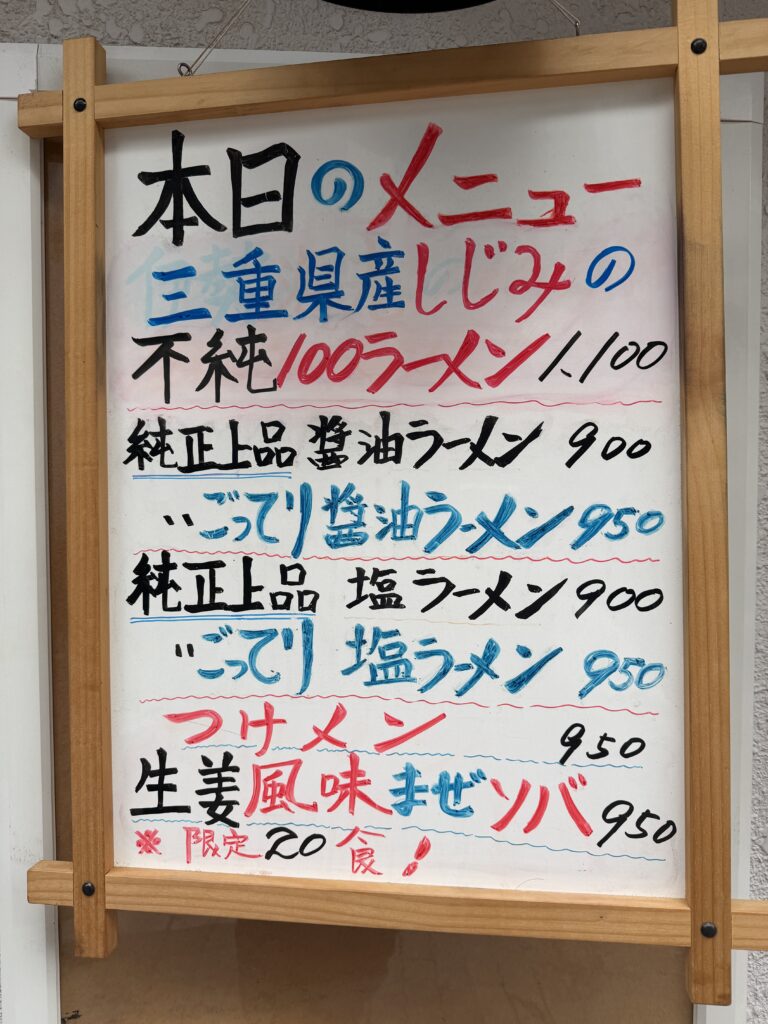 本日のメニュー
三重県産しじみの
不純100ラーメン 1.100
純正上品 醤油ラーメン 900
〃ごってり醤油ラーメン 950
純正上品 塩ラーメン 900
〃ごってり 塩ラーメン 950
つけメン 950
生姜風味まぜソバ 950
※限定20食!